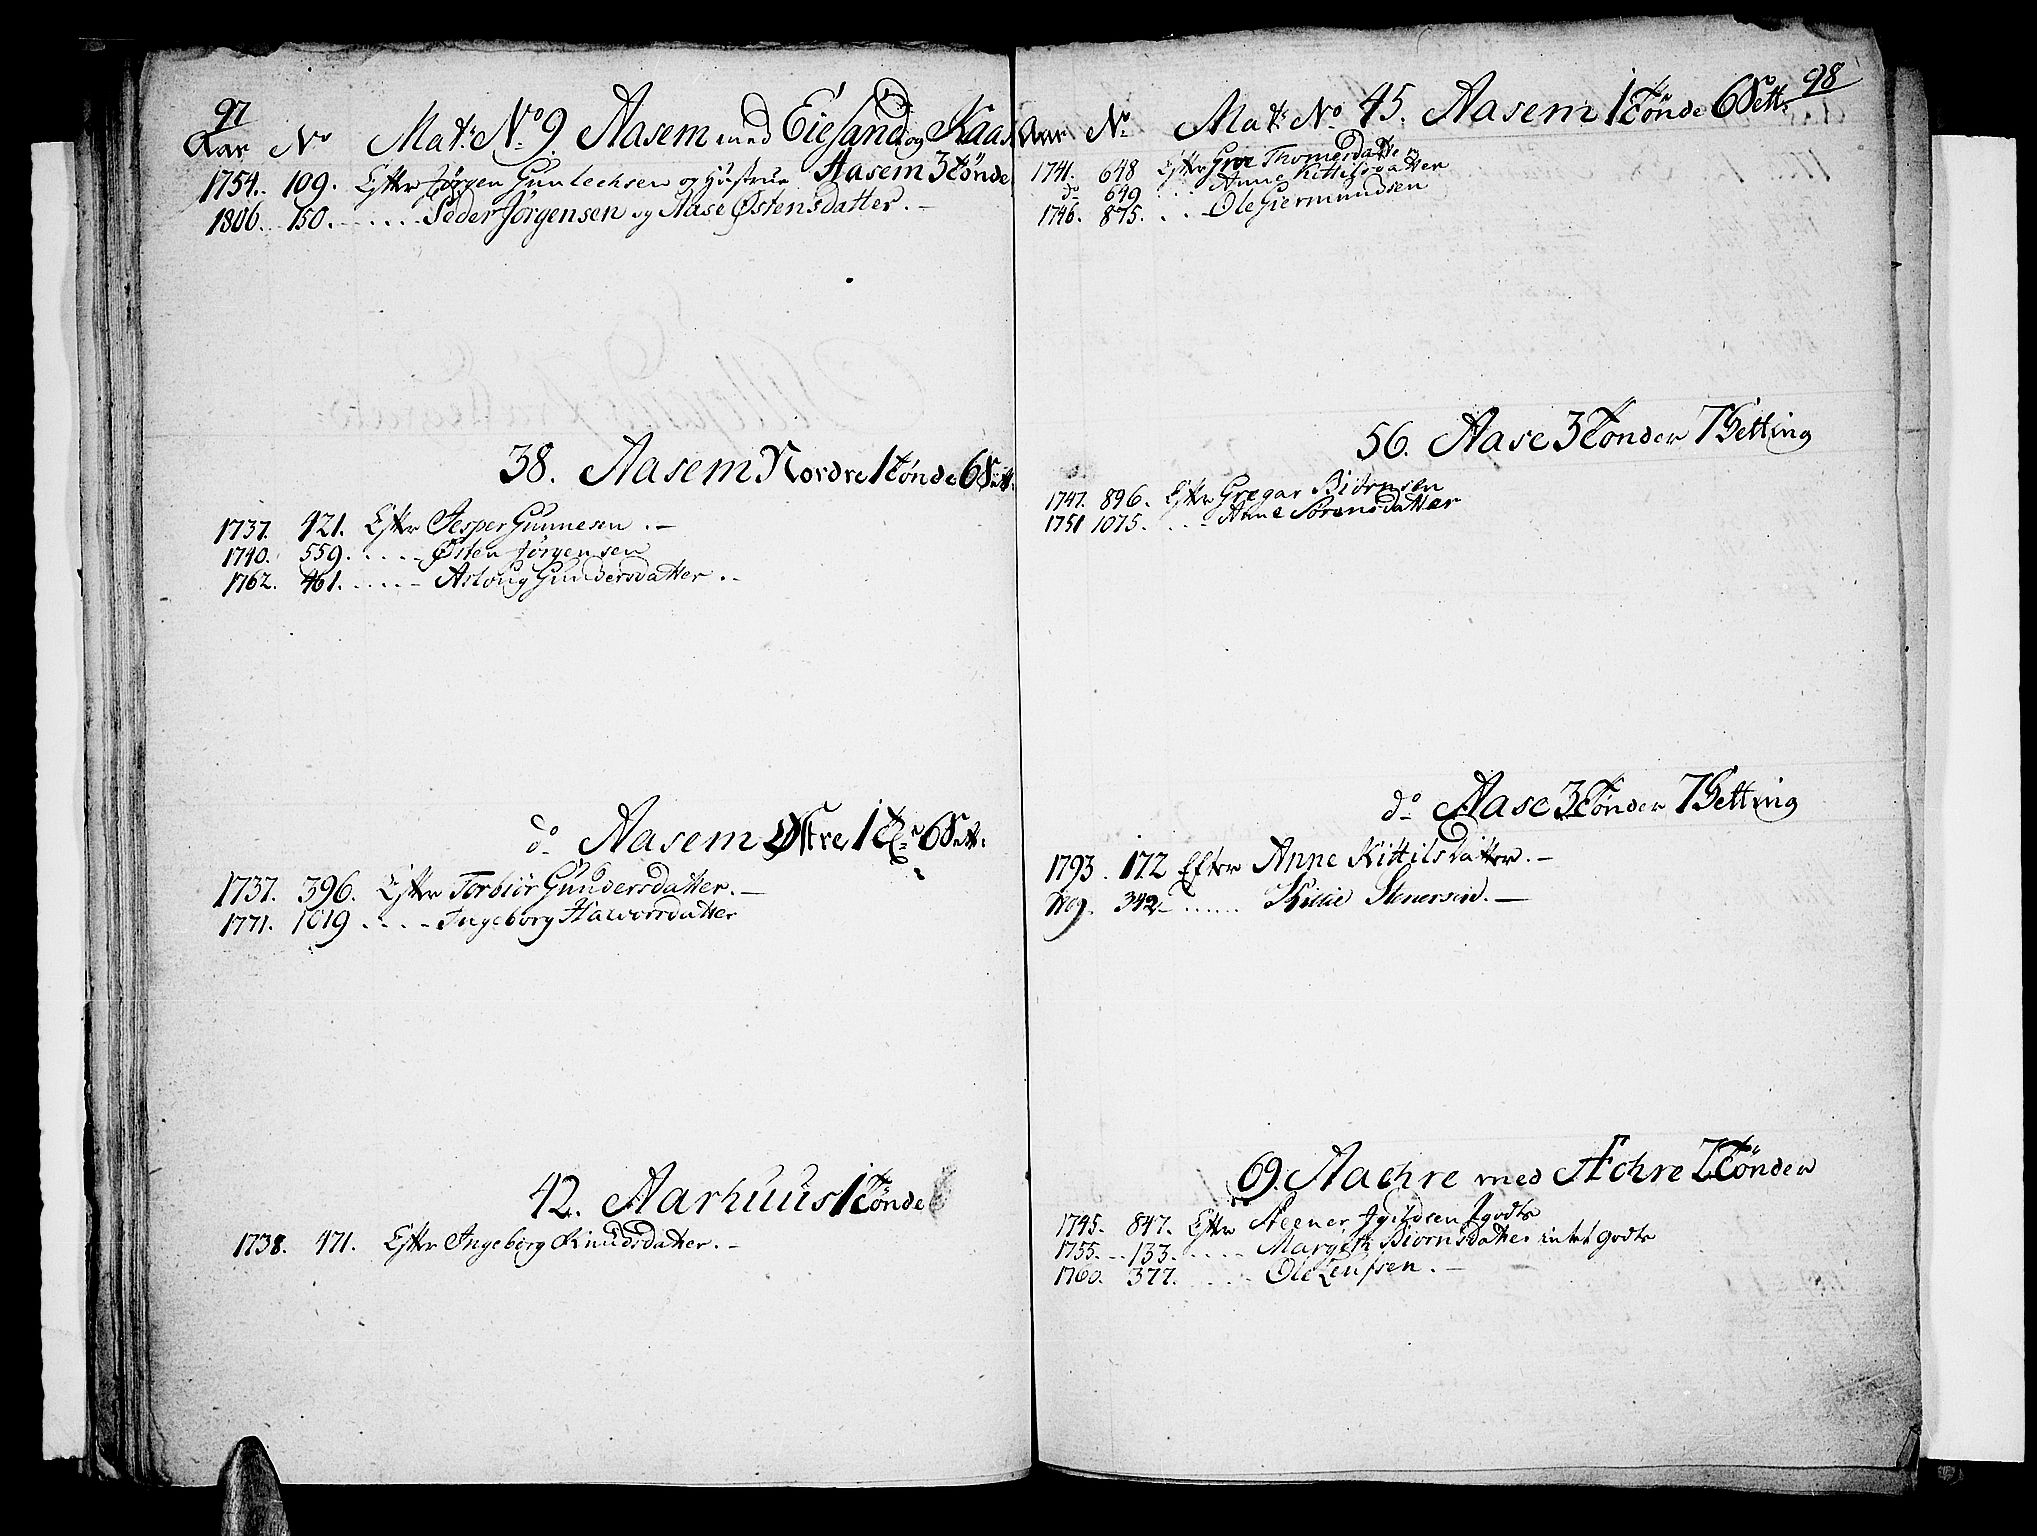 97
Aar No Mat: No 9. Aasem med Eiesand og Kaas
Aasem 3 Tönde
1754. 109. Efter Jørgen Gunlechsen og Hustrue
1806. 150. - . . . . Peder Jörgensen og Aase Østensdatter. -
38. Aasem Nordre 1 Tönde 6 Sett:
1737. 421. Efter Jesper Gunnesen . -
1740. 559. . . . . - Østen Jörgensen
1762. 461. . . . . - Asloug Gundersdatter . -
do Aasem Østre 1 Te 6 Sett:
1737. 396. Efter Torbiör Gundersdatter. -
1771. 1019 . . . . - Ingeborg Halvorsdatter
42. Aarhuus 1 Tönde
1738. 471. Efter Ingeborg Knudsdatter. -
98
Aar No. Mat: No 45. Aasem 1 Tönde 6 Sett:
1741. 648 Efter Groe Thomesdatter
do 649 . . Anne Kittilsdatter
1746. 875. . . Ole Giermundsen
56. Aase 3 Tönder 7 Setting
1747. 896. Efter Gregar Biörnsen
1751 1075. . . . Anne Sörensdatter
do Aase 3 Tönder 7 Setting
1793. 172 Efter Anne Kittilsdatter. -
342 - . . . . . Stenersen. -
69. Aaehre med Aehre 7 Tönder
1745. 847. Efter Steener godts
1755. - - 133. . . . . - Margith Biörnsdatter intet godts
1760. 377. . . . . - Ole Leufsen. -